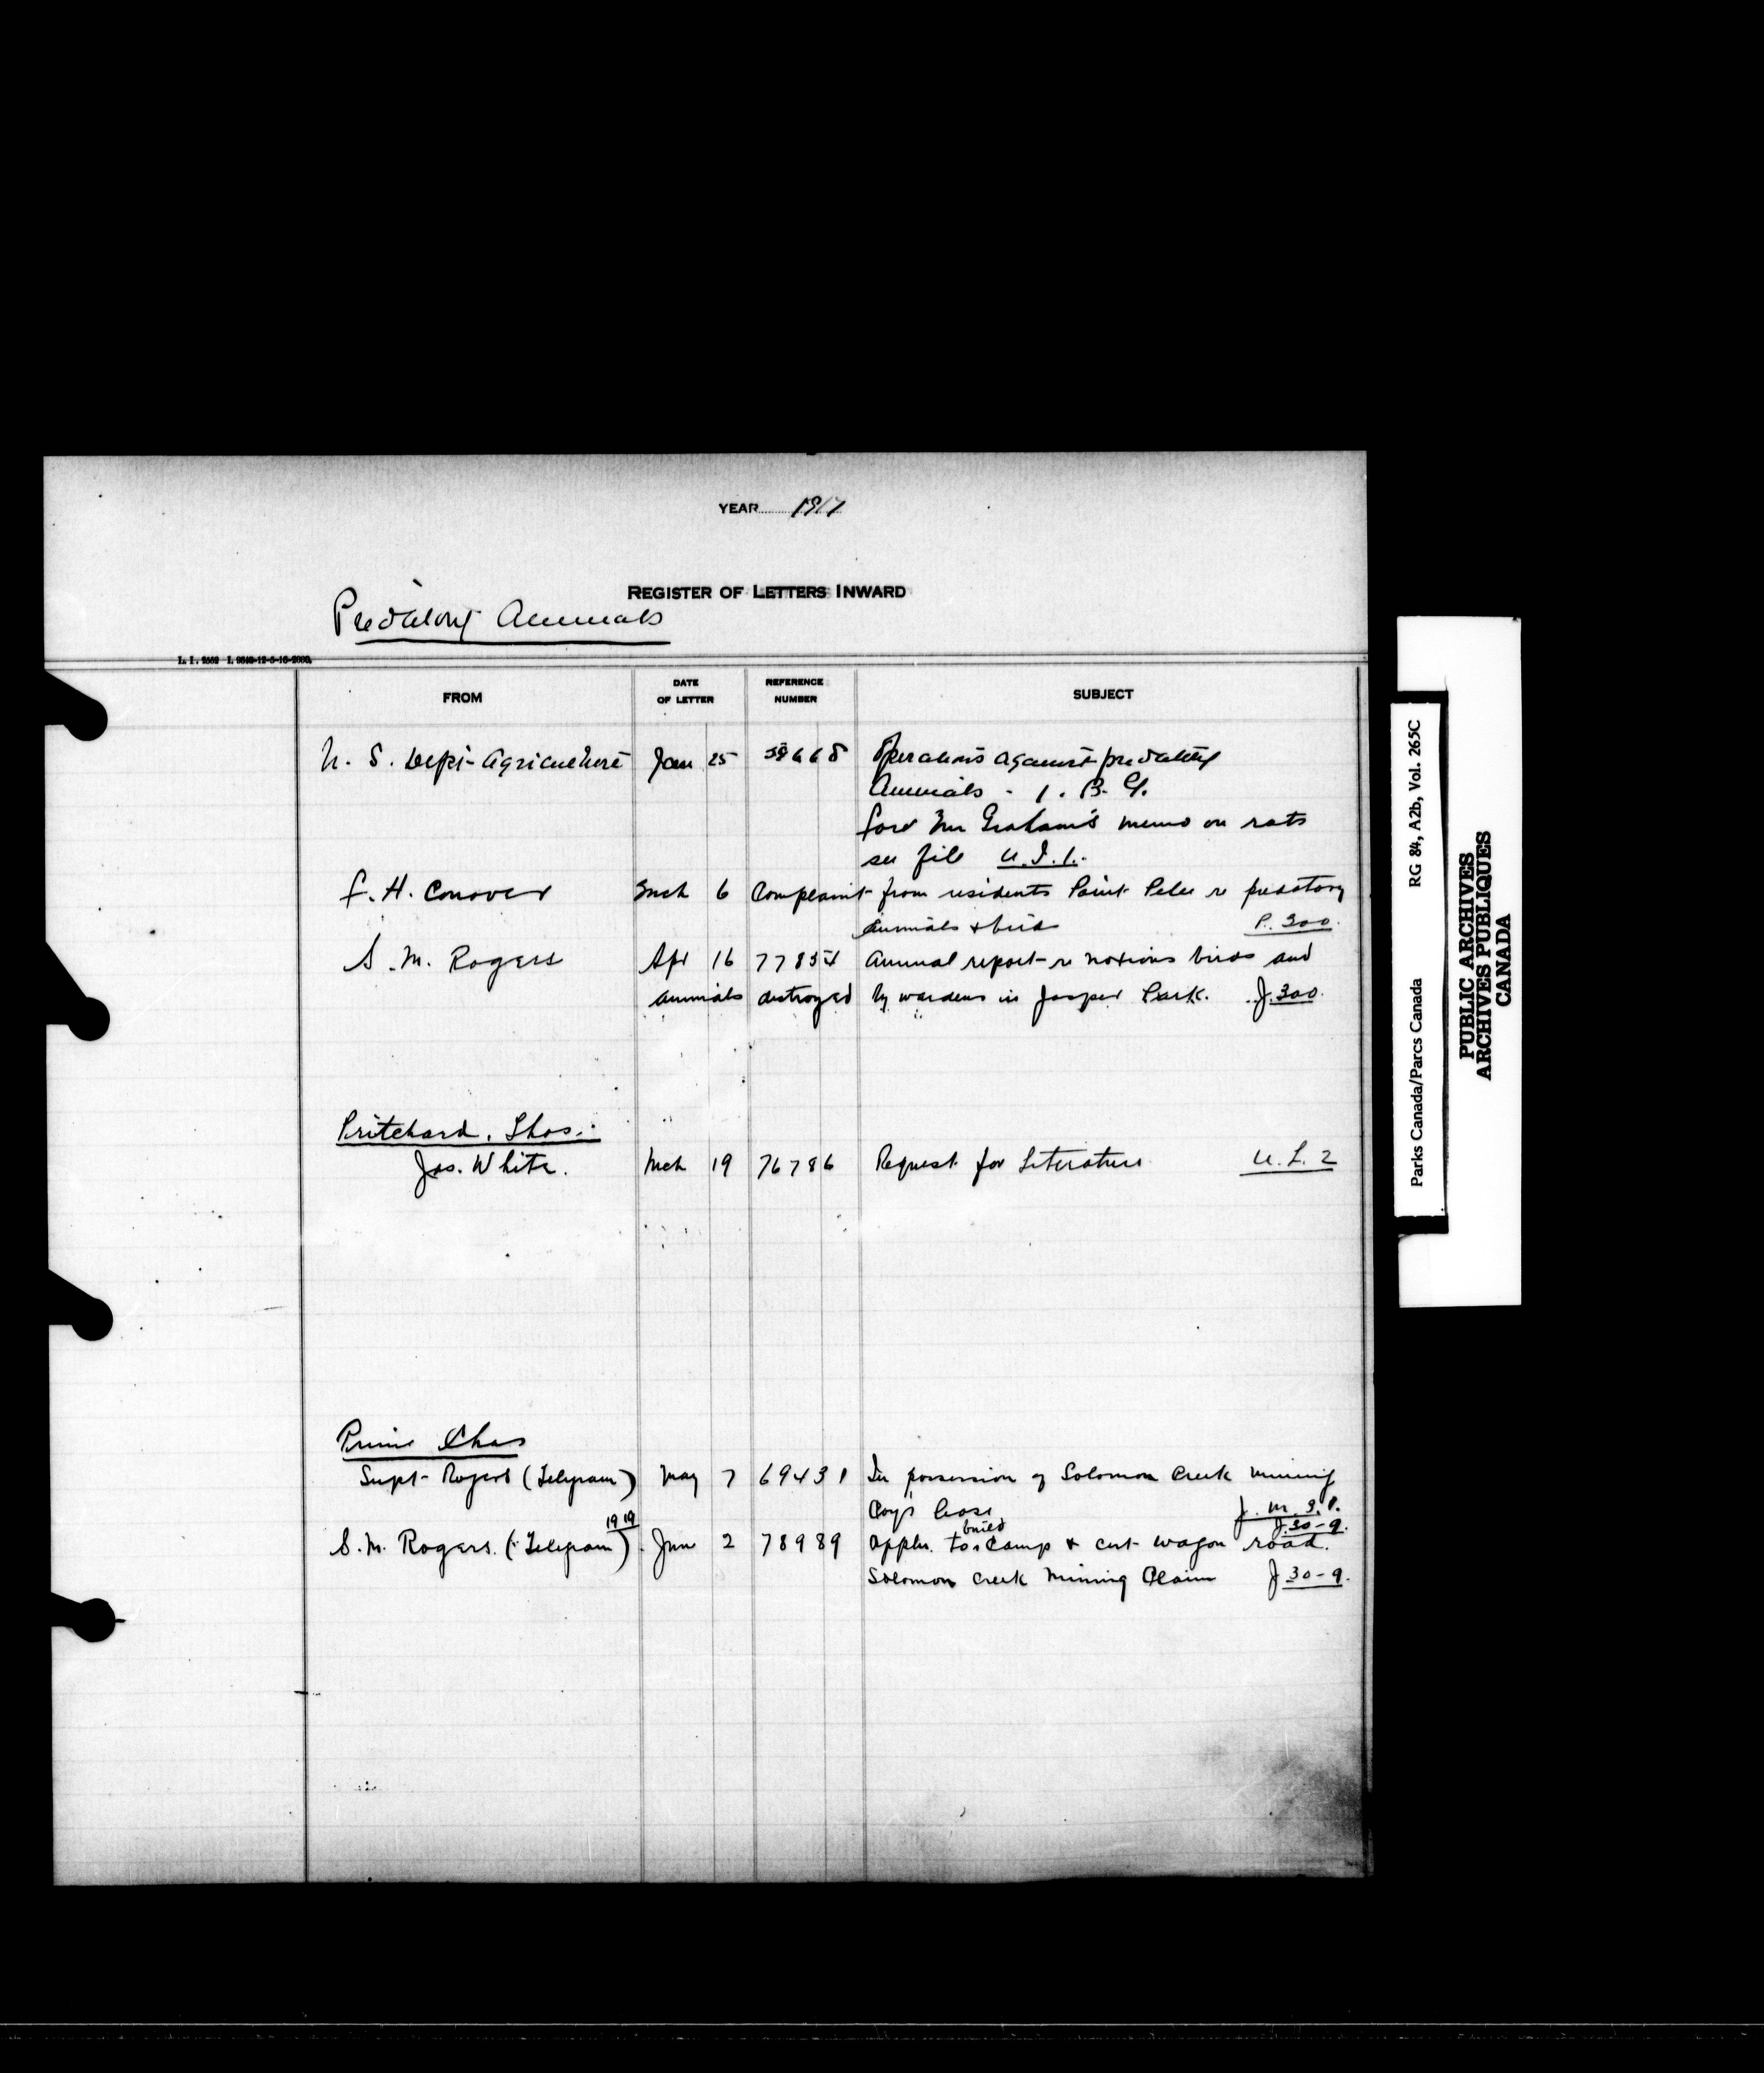 YEAR 1917
REGISTER OF LETTERS INWARD
Predatory Animals
FROM DATE OF LETTER REFERENCE NUMBER SUBJECT
U. S. Dept Agriculture Jan 25 58668 Operations against predatory
Animals - 1. B. Y.
for Mr Graham's memo on rats
see file U.I.1.
F. H. Conover Mch 6 Complaint from residents Point Pelee re predatory
animals & birds P. 300.
S. M. Rogers Apr 16 77854 Annual report re noxious birds and
animals destroyed by wardens in Jasper Park. J. 300.
Pritchard, Thos.
Jas. White. Mch 19 76786 Request for Literature U. L. 2
Prime Chas
Supt Rogers (Telegram) May 7 69431 In possession of Solomon Creek Mining
Coy's lease J. M. 3. 1.
J. 30-9.
1919
S. M. Rogers. (Telegram). Jun 2 78989 Appln. to build camp & cut wagon road.
Solomon Creek Mining Claim J 30-9.
Parks Canada/Parcs Canada RG 84, A2b, Vol. 265C
PUBLIC ARCHIVES
ARCHIVES PUBLIQUES
CANADA